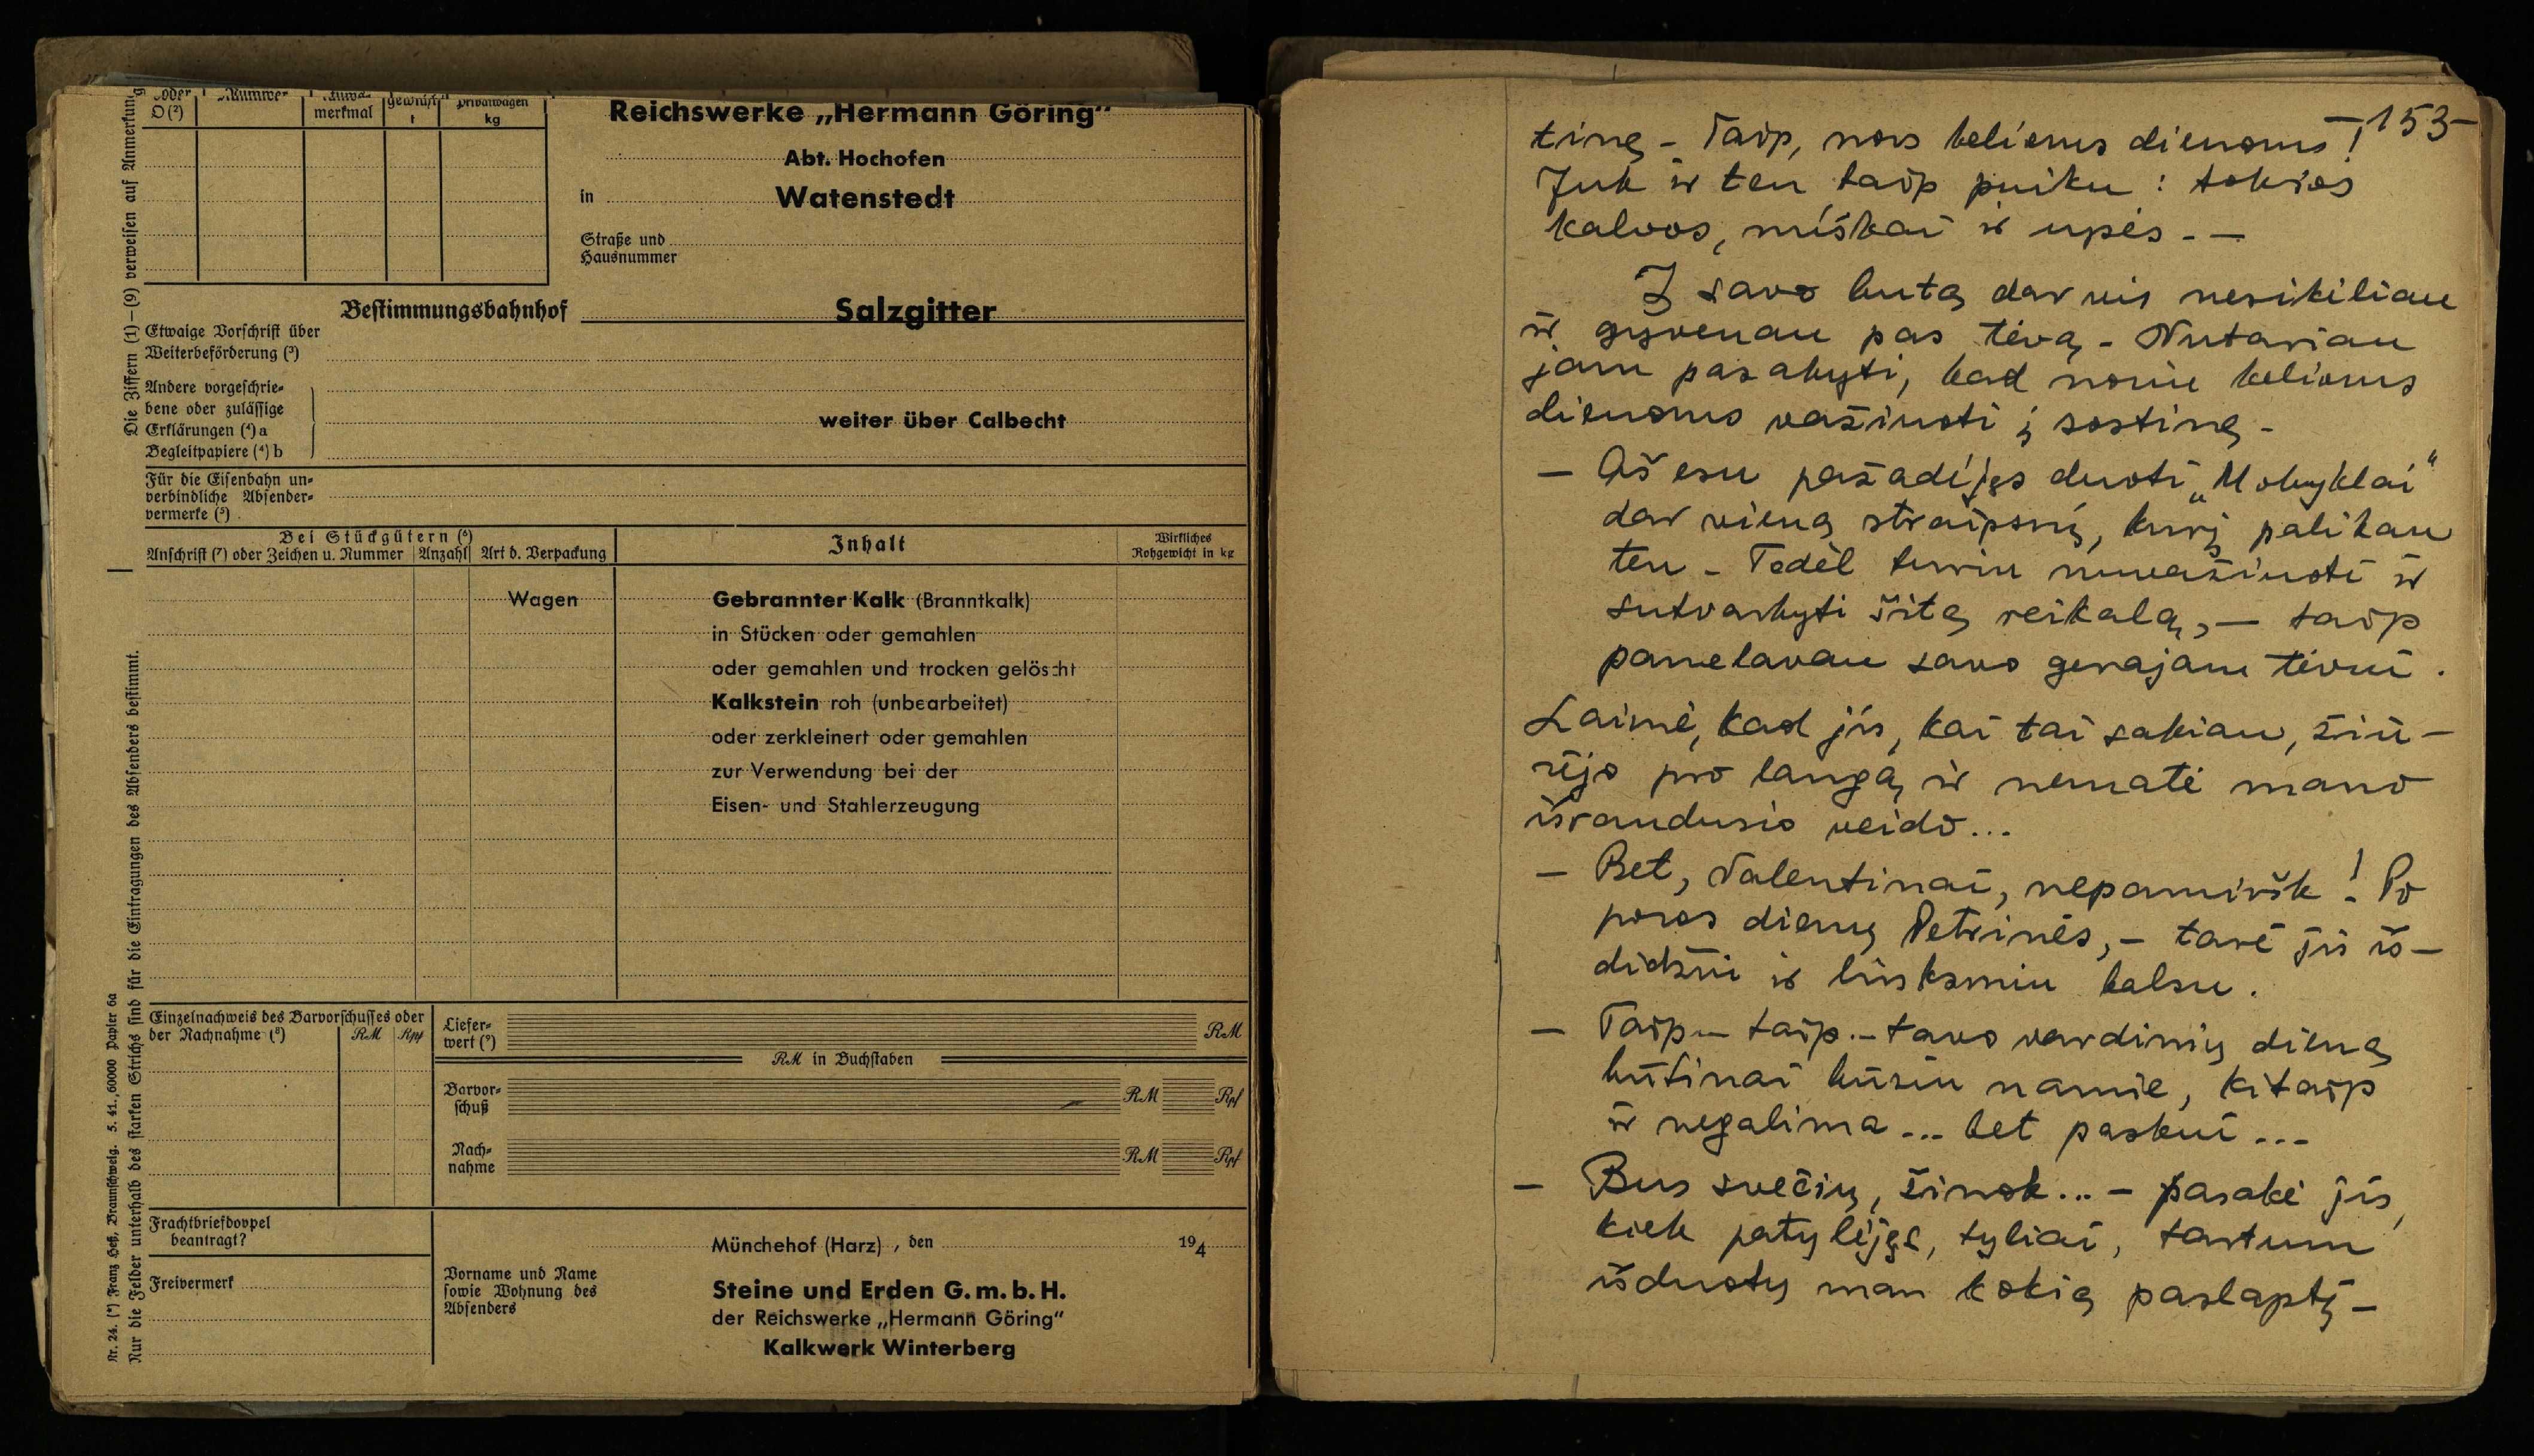 oder
D (²)
Numme-
merkmal
t
Privatwagen
kg
Reichswerke „Hermann Göring“
Abt. Hochofen
in Watenstedt
Straße und
Hausnummer
Bestimmungsbahnhof Salzgitter
Etwaige Vorschrift über
Weiterbeförderung (³)
Andere vorgeschrie-
bene oder zulässige
Erklärungen (⁴) a
Begleitpapiere (⁴) b
weiter über Calbecht
Für die Eisenbahn un-
verbindliche Absender-
vermerke (⁵)
Bei Stückgütern (⁶)
Anschrift (⁷) oder Zeichen u. Nummer Anzahl Art d. Verpackung
Inhalt
Wirkliches
Rohgewicht in kg
Wagen Gebrannter Kalk (Branntkalk)
in Stücken oder gemahlen
oder gemahlen und trocken gelöscht
Kalkstein roh (unbearbeitet)
oder zerkleinert oder gemahlen
zur Verwendung bei der
Eisen- und Stahlerzeugung
Einzelnachweis des Barvorschusses oder
der Nachnahme (⁸) RM Rpf
Liefer-
wert (⁹) RM
RM in Buchstaben
Barvor-
schuß RM Rpf
Nach-
nahme RM Rpf
Frachtbriefdoppel
beantragt?
Freivermerk
Münchehof (Harz) , den 194
Vorname und Name
sowie Wohnung des
Absenders
Steine und Erden G. m. b. H.
der Reichswerke „Hermann Göring“
Kalkwerk Winterberg
Die Ziffern (1)—(9) verweisen auf Anmerkung
Nur die Felder unterhalb des starken Strichs sind für die Eintragungen des Absenders bestimmt.
Nr. 24. (*) Franz Heß, Braunschweig. 5. 41., 60000 Papier 6a
– 153 –
tinę – Taip, nors kelioms dienoms!
Juk ir ten taip puiku: tokios
kalvos, miškai ir upės. —
Į savo butą dar vis nesikėliau
ir gyvenau pas tėvą – Nutariau
jam pasakyti, kad noriu kelioms
dienoms važiuoti į sostinę –
— Aš esu pažadėjęs duoti „Mokyklai“
dar vieną straipsnį, kurį palikau
ten – Todėl turiu nuvažiuoti ir
sutvarkyti šitą reikalą, — taip
pamelavau savo gerajam tėvui.
Laimė, kad jis, kai tai sakiau, žiū-
rėjo pro langą ir nematė mano
išraudusio veido...
— Bet, Valentinai, nepamiršk! Po
poros dienų Petrinės, – tarė jis iš-
didžiu ir linksmiu balsu.
— Taip – taip. – tavo vardinių dieną
būtinai būsiu namie, kitaip
ir negalima... bet paskui...
— Bus svečių, žinok... – pasakė jis,
kiek patylėjęs, tyliai, tartum
išduotų man kokią paslaptį –